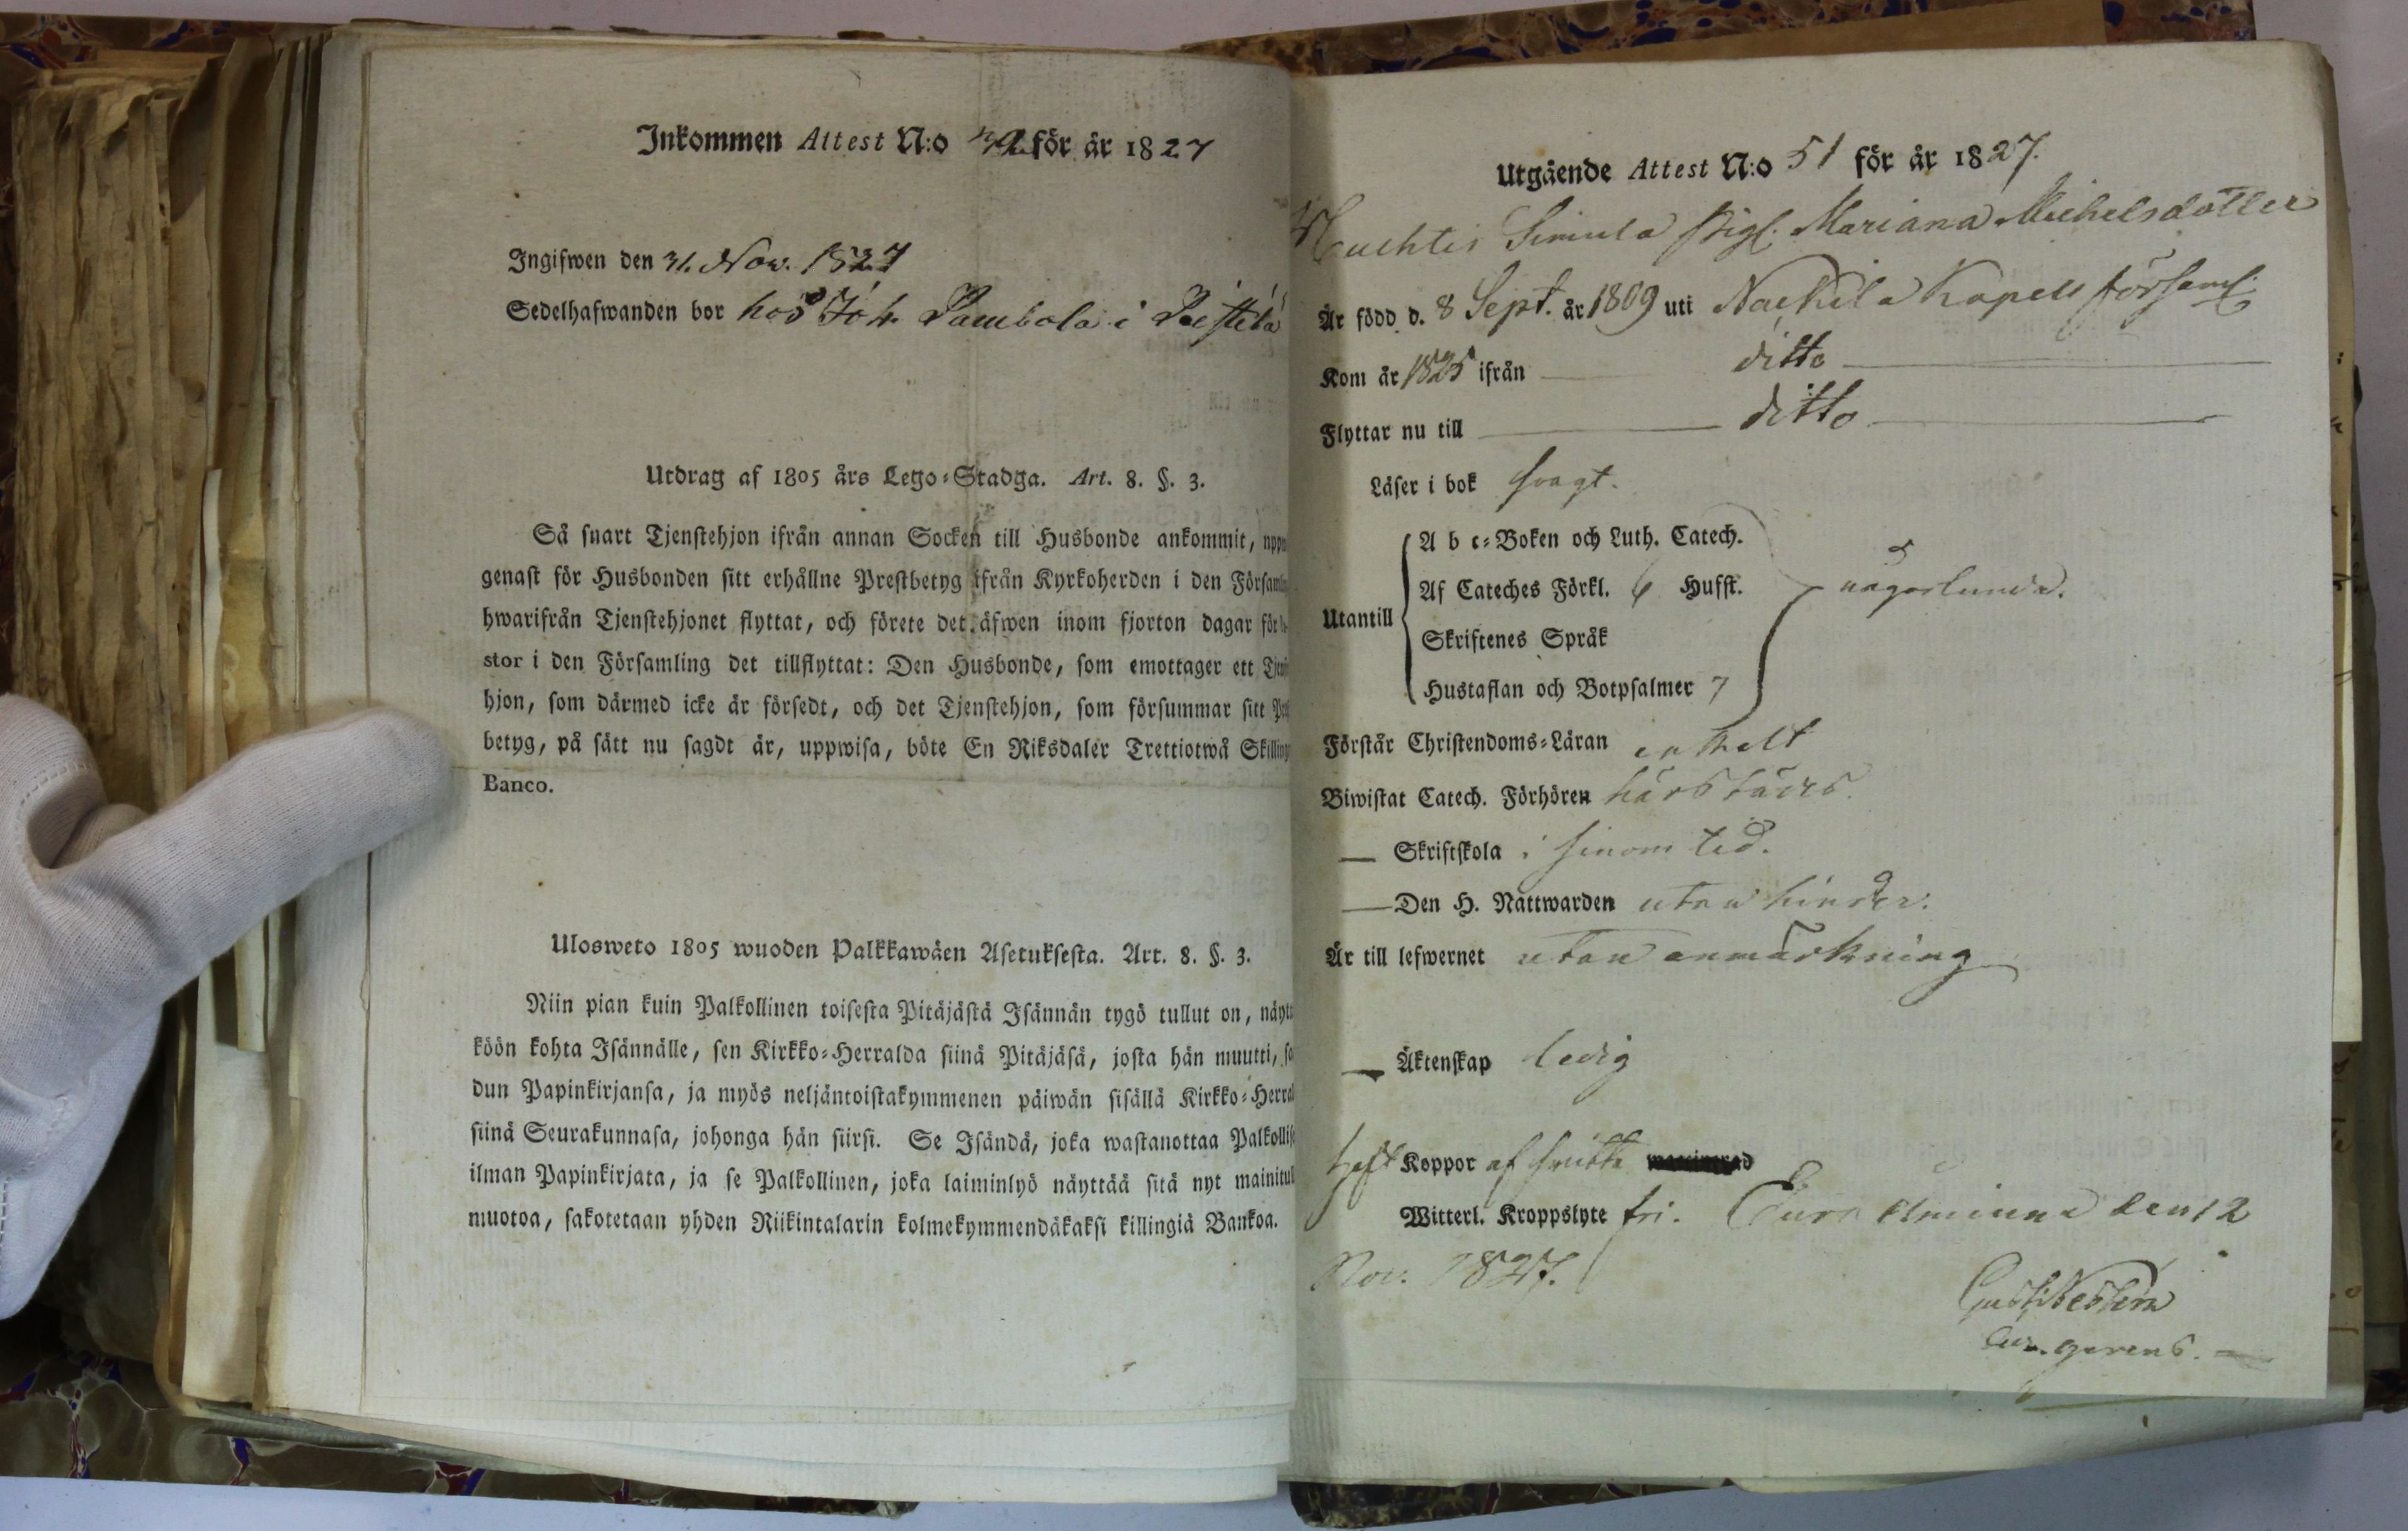 Inkommen Attest N:o för år 1827
Ingifwen den 31. Nov. 1827
Sedelhafwanden bor hos Joh. i
Utdrag af 1805 års Lego-Stadga. Art. 8. §. 3.
Så snart Tjenstehjon ifrån annan Socken till Husbonde ankommit,
genast för Husbonden sitt erhållne Prestbetyg ifrån Kyrkoherden i den
hwarifrån Tjenstehjonet flyttat, och förete det äfwen inom fjorton dagar för
stor i den Församling det tillflyttat: Den Husbonde, som emottager ett
hjon, som därmed icke är försedt, och det Tjenstehjon, som försummar sitt
betyg, på sätt nu sagdt är, uppwisa, böte En Riksdaler Trettiotwå
Banco.
Ulosweto 1805 wuoden Palkkawäen Asetuksesta. Art. 8. §. 3.
Niin pian kuin Palkollinen toisesta Pitäjästä Isännän tygö tullut on,
köön kohta Isännälle, sen Kirkko-Herralda siinä Pitäjäsä, josta hän muutti,
dun Papinkirjansa, ja myös neljäntoistakymmenen päiwän sisällä
siinä Seurakunnasa, johonga hän siirsi. Se Isändä, joka wastanottaa
ilman Papinkirjata, ja se Palkollinen, joka laiminlyö näyttää sitä nyt
muotoa, sakotetaan yhden Riikintalarin kolmekymmendäkaksi killingiä Bankoa.
Utgående Attest N:o 51 för år 1827.
Simula pig. Mariana Michelsdotter
Är född d. 8 Sept. år 1809 uti Nackila Kapell församl.
Kom år 1825 ifrån ditto
Flyttar nu till ditto
Läser i bok svagt.
Utantill
A b c-Boken och Luth. Catech.
Af Cateches Förkl. 6 Hufst.
Skriftenes Språk
Hustaflan och Botpsalmer 7
någorlunda.
Förstår Christendoms-Läran enkelt
Biwistat Catech. Förhören härstädes.
— Skriftskola i sinom tid.
— Den H. Nattwarden utan hinder.
Är till lefwernet utan anmärkning
— Äktenskap ledig
haft Koppor af smitta
Witterl. Kroppslyte fri. Eura åminne den 12
Nov. 1827.
Gust. Westén
Cur. gerens.